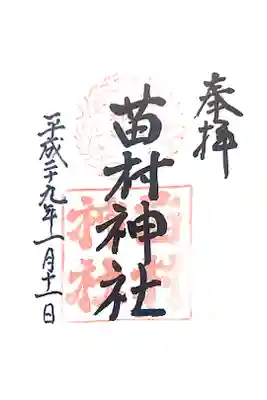 奉拝
苗村神社
平成二十九年一月十一日